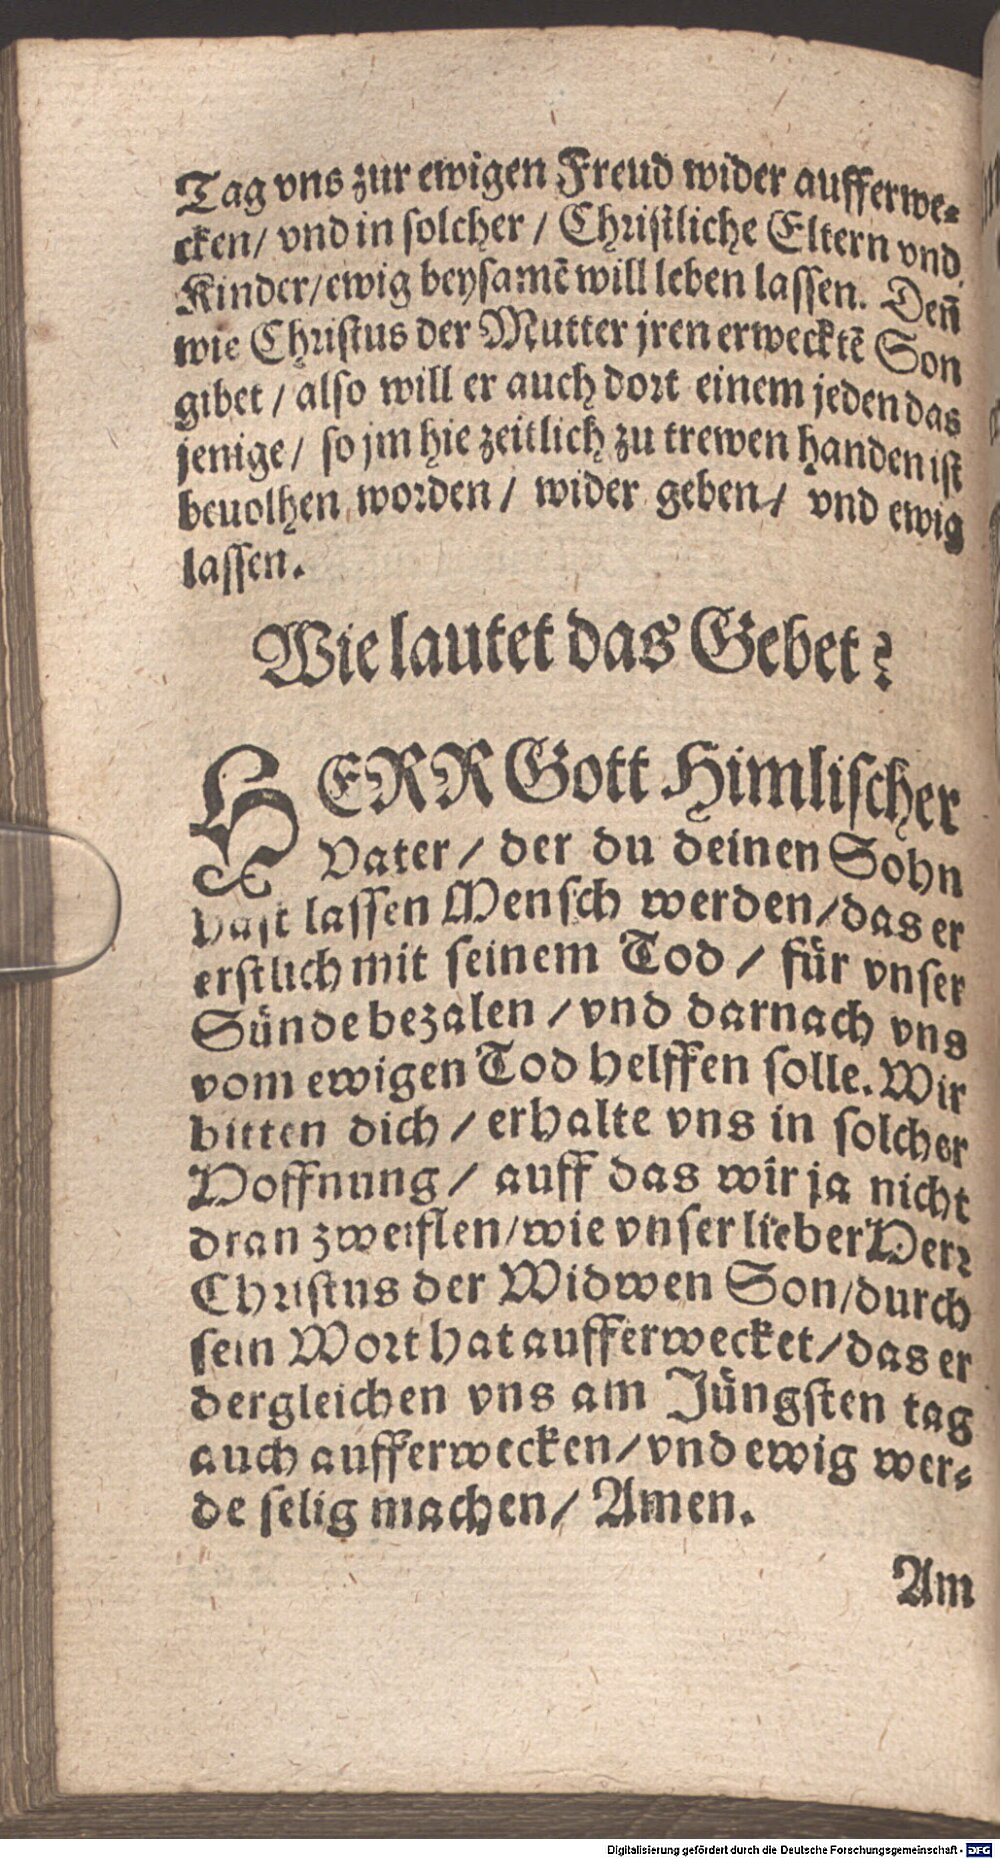 Tag vns zur ewigen Freud wider aufferwe-
cken/ vnd in solcher / Christliche Eltern vnd
Kinder/ewig beysamē will leben lassen. Deñ
wie Christus der Mutter jren erwecktē Son
gibet / also will er auch dort einem jeden das
jenige/ so jm hie zeitlich zu trewen handen ist
beuolhen worden / wider geben / vnd ewig
lassen.
Wie lautet das Gebet?
HERR Gott Himlischer
Vater / der du deinen Sohn
hast lassen Mensch werden/das er
erstlich mit seinem Tod / für vnser
Sünde bezalen /vnd darnach vns
vom ewigen Tod helffen solle. Wir
bitten dich / erhalte vns in solcher
Hoffnung / auff das wir ja nicht
dran zweiflen/wie vnser lieber Herr
Christus der Widwen Son/durch
sein Wort hat aufferwecket/das er
dergleichen vns am Jüngsten tag
auch aufferwecken/vnd ewig wer-
de selig machen/ Amen.
Am
Digitalisierung gefördert durch die Deutsche Forschungsgemeinschaft - DFG